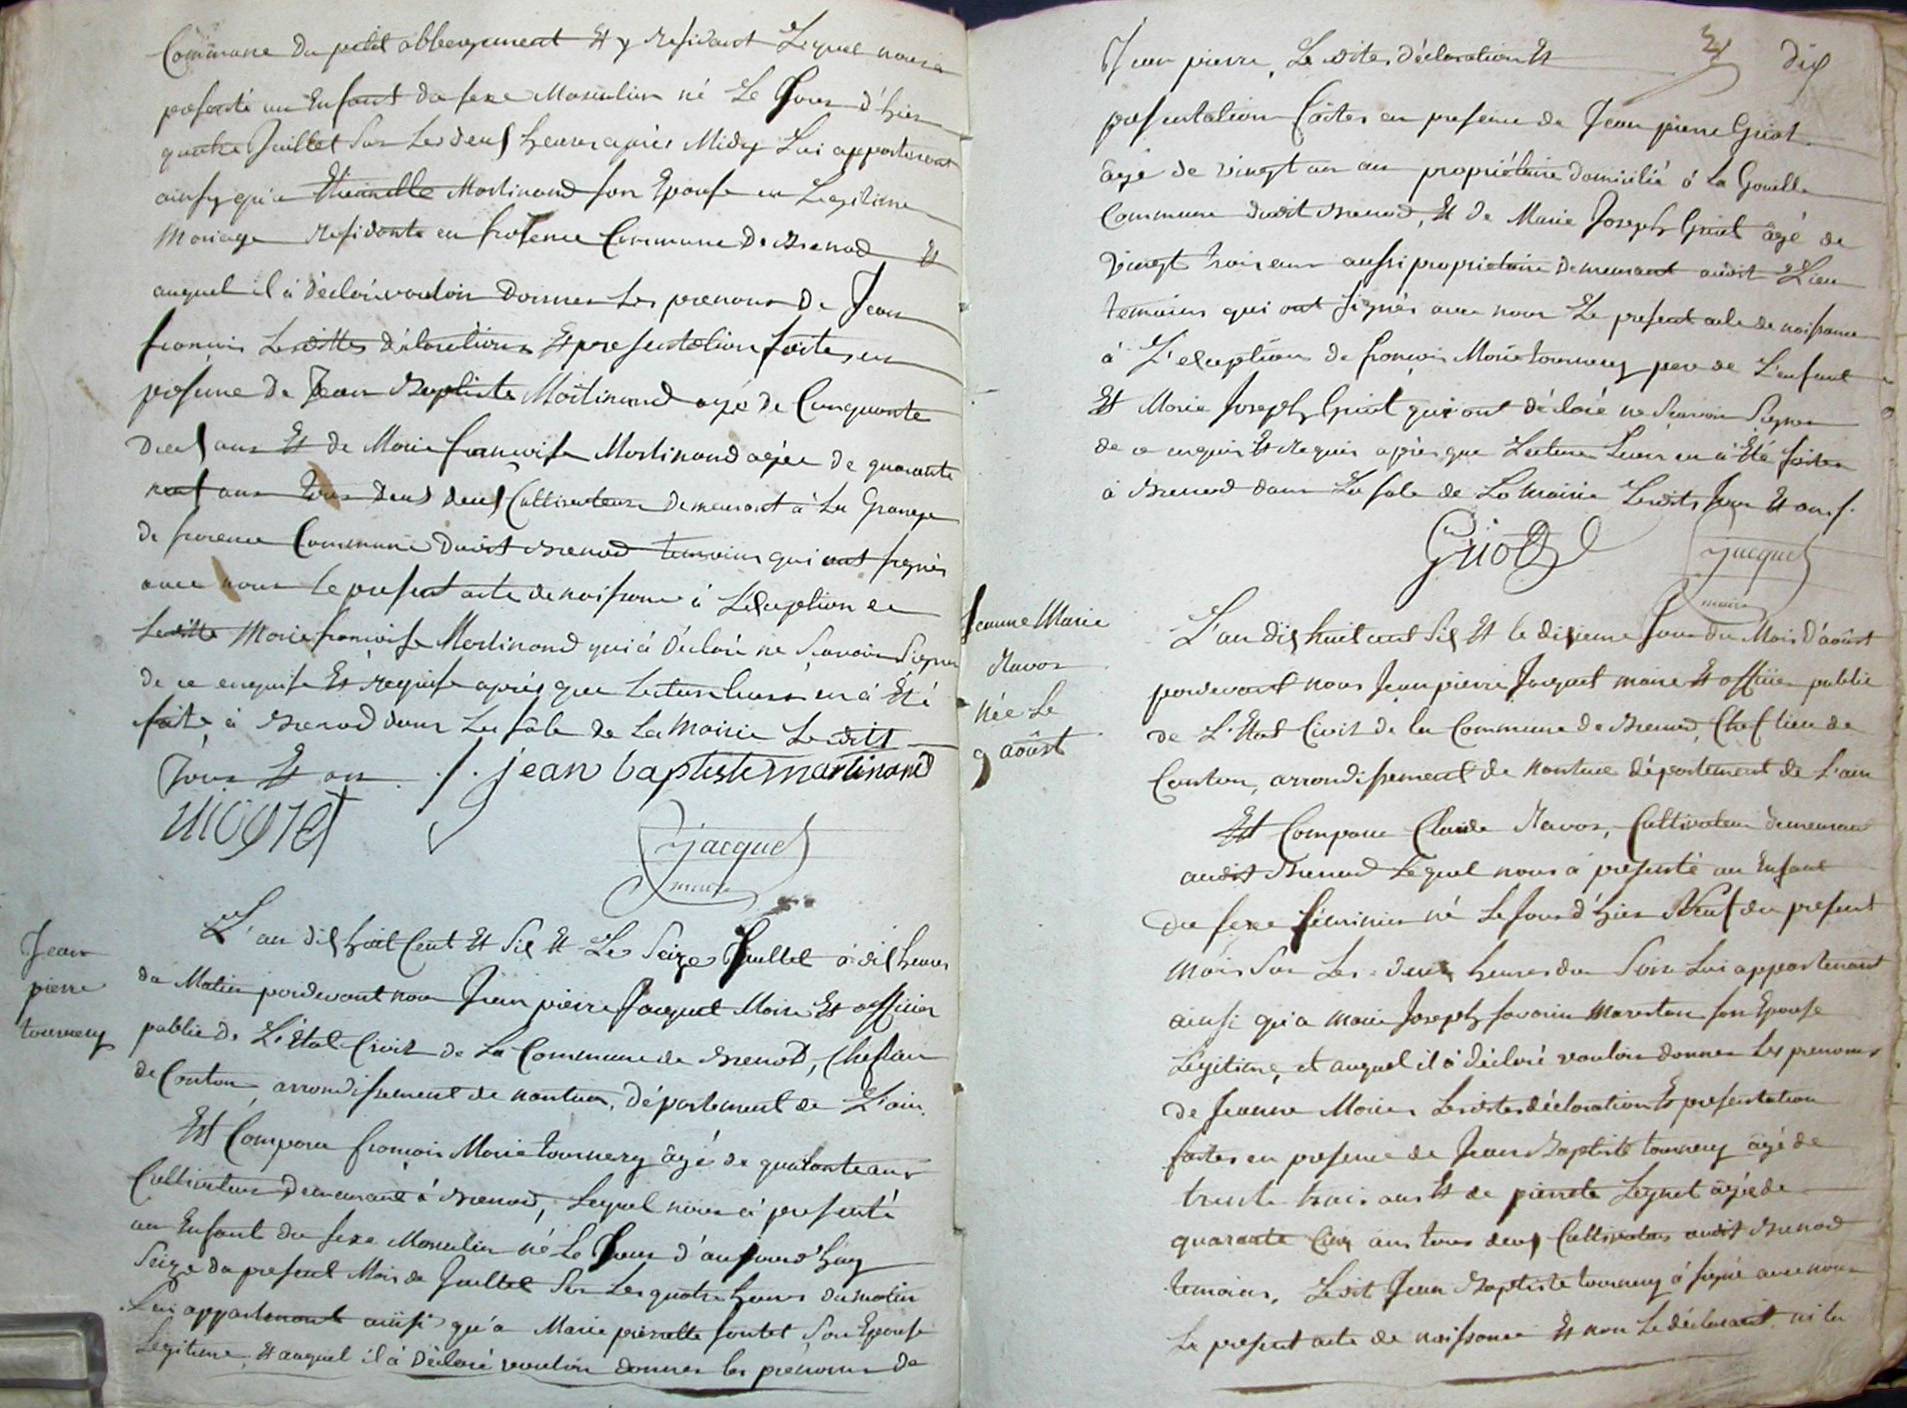 Commune du petit abbergement Et y residant Lequel nous a
presenté un Enfant du sexe Masculin né Le Jour d'hier
quatre Juillet Sur Les deux heures après Midy Lui appartenant
ainsy qu'a Etiennette Martinand son Epouse en Legitime
Mariage residante en Commune de Brenod Et
auquel il à déclaré vouloir donner Les prenoms de Jean
francois Lesdittes déclarations Et presentation faites en
presence de Jean Baptiste Martinand agé de Cinquante
deux ans Et de Marie francoise Martinand agée de quarante
neuf ans tous deux Cultivateurs demeurant à La Grange
de Commune dudit Brenod temoins qui ont signés
avec nous le present acte de naissance à L'exception de
Laditte Marie francoise Martinand qui à déclaré ne Scavoir Signer
de ce enquise Et requise après que Lecture Leurs en à Eté
faite à Brenod dans La sale de La Mairie Lesdits
Jour Et an ./. jean baptiste martinand
jacquet
maire
Jean
pierre
tournery
L'an dix huit Cent Et Six Et Le Seize Juillet à dix heures
du Matin pardevant nous Jean pierre Jacquet Maire Et officier
public de L'Etat Civil de La Commune de Brenod, Cheflieu
de Canton, arrondissement de nantua, département de L'ain.
Est Comparu francois Marie tournery âgé de quarante ans
Cultivateur demeurant à Brenod, Lequel nous à presenté
un Enfant du sexe Masculin né Le Jour d'aujourd'huy
Seize du present Mois de Juillet Sur Les quatre heures du matin
Lui appartenant ainsi qu'a Marie pierrette Son Epouse
Légitime, Et auquel il à déclaré vouloir donner les prénoms de
dix
Jean pierre, Lesdites déclaration Et
presentation faites en presence de Jean pierre Griot
âgé de vingt un an propriétaire domicilié à La Gouille
Commune dudit Brenod, Et de Marie Joseph Griot âgé de
vingt trois ans aussi proprietaire demeurant audit Lieu
temoins qui ont signés avec nous Le present acte de naissance
à L'exception de francois Marie tournery pere de L'enfant
Et Marie Joseph Griot qui ont déclaré ne Scavoir Signer
de ce enquis Et requis après que Lecture Leurs en à Eté faites
à Brenod dans La sale de La Mairie Lesdits Jour Et an ./.
Griot
jacquet
maire
Jeanne Marie
Ravoz
née Le
9 août
L'an dix huit cent Six Et le dixieme Jour du Mois d'août
pardevant nous Jean pierre Jacquet maire Et officier public
de L'Etat Civil de la Commune de Brenod, Chef lieu de
Canton, arrondissement de nantua département de L'ain
Est Comparu Claude Ravoz, Cultivateur demeurant
audit Brenod Lequel nous à presenté un Enfant
du sexe féminin né Le Jour d'hier Neuf du present
mois Sur Les deux heures du Soir Lui appartenant
ainsi qu'a marie Joseph son Epouse
Légitime, et auquel il à déclaré vouloir donner Les prenoms
de Jeanne Marie, Lesdites déclaration Et presentation
faites en presence de Jean Baptiste tournery âgé de
trente trois ans Et de pierrette âgée de
quarante Cinq ans tous deux Cultivateurs audit Brenod
temoins, Ledit Jean Baptiste tournery à signé avec nous
Le present acte de naissance Et non Le déclarant ni la